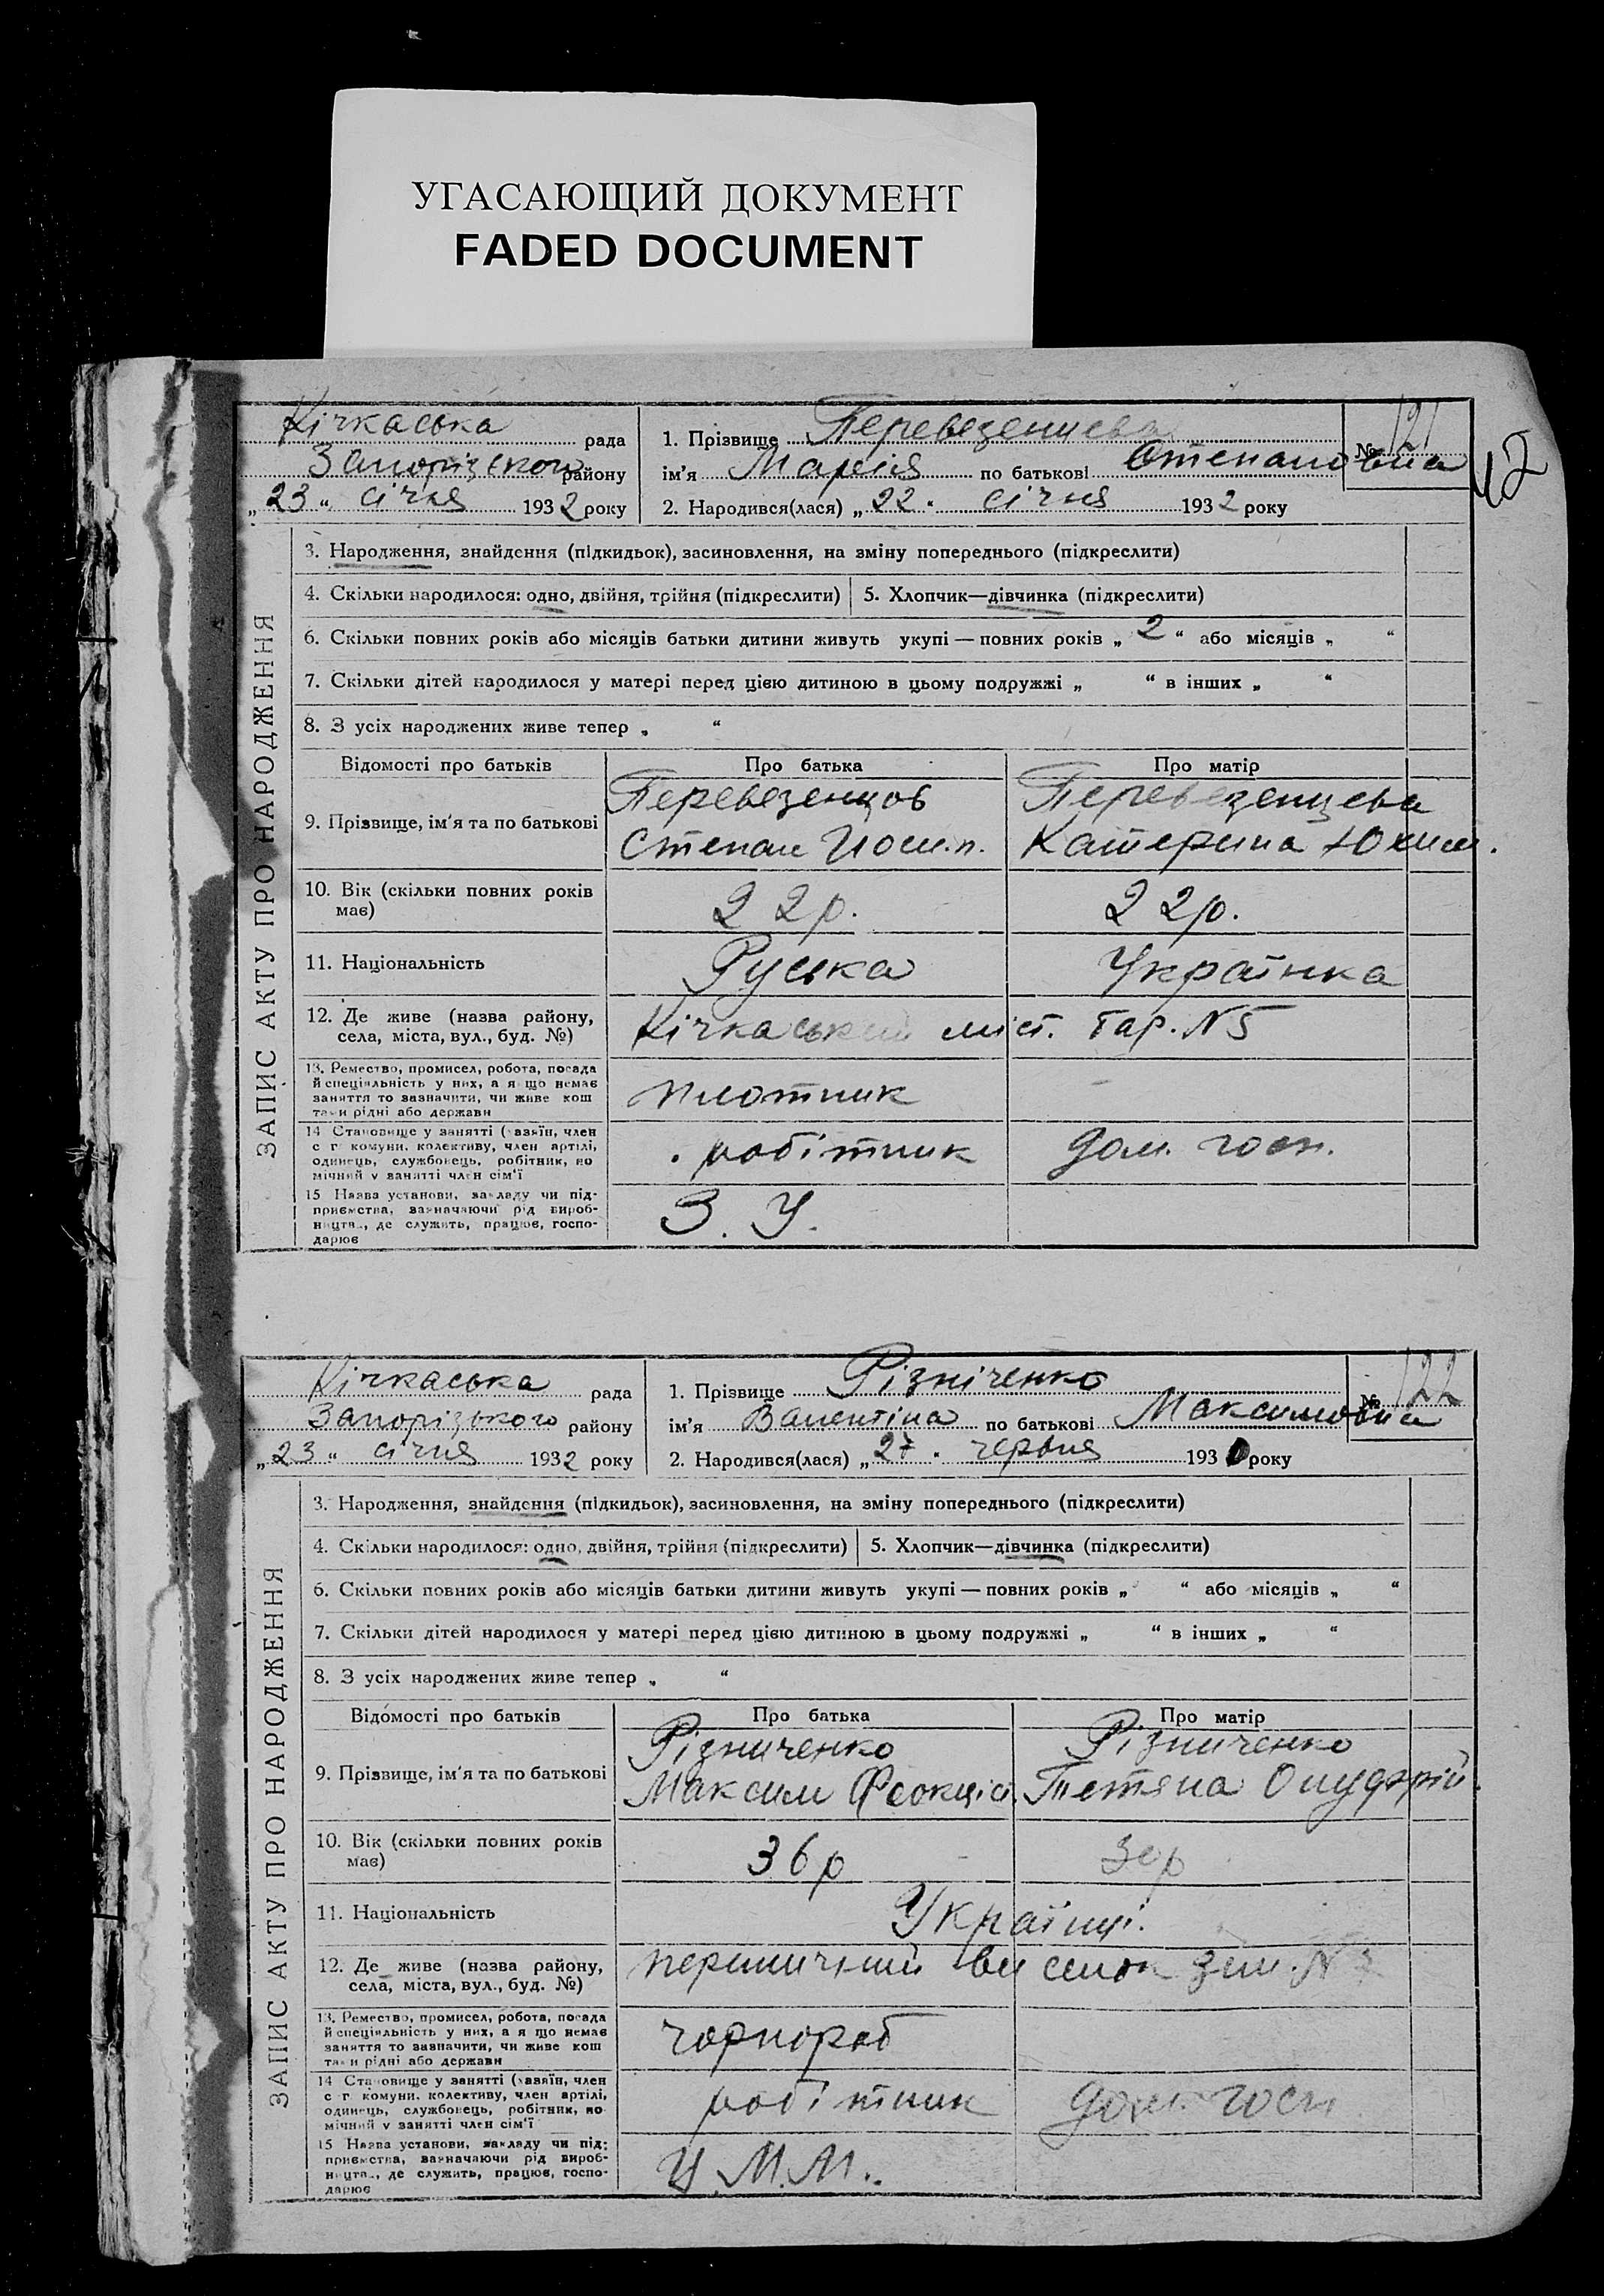 УГАСАЮЩИЙ ДОКУМЕНТ
FADED DOCUMENT
42
Кічкаська рада
Запорізького району
„23“ січня 1932 року
1. Прізвище Перевезенцева
ім'я Марія по батькові Степановна
№ 121
2. Народився(лася) „22“ січня 1932 року
ЗАПИС АКТУ ПРО НАРОДЖЕННЯ
3. Народження, знайдення (підкидьок), засиновлення, на зміну попереднього (підкреслити)
4. Скільки народилося: одно, двійня, трійня (підкреслити) 5. Хлопчик—дівчинка (підкреслити)
6. Скільки повних років або місяців батьки дитини живуть укупі — повних років „2“ або місяців „ “
7. Скільки дітей народилося у матері перед цією дитиною в цьому подружжі „ “ в інших „ “
8. З усіх народжених живе тепер „ “
Відомості про батьків Про батька Про матір
9. Прізвище, ім'я та по батькові
Перевезенцов
Степан Йосип.
Перевезенцева
Катерина Юхим.
10. Вік (скільки повних років
має)
22р. 22р.
11. Національність Руська Українка
12. Де живе (назва району,
села, міста, вул., буд. №)
Кічкаський міст. бар. N 5
13. Ремество, промисел, робота, посада
й спеціяльність у них, а якщо немає
заняття то зазначити, чи живе кош
тами рідні або держави
плотник –
14 Становище у занятті (хазяїн, член
с г комуни, колективу, член артілі,
одинець, службовець, робітник, по
мічний у занятті член сім'ї
робітник дом. госп.
15 Назва установи, закладу чи під-
приємства, зазначаючи рід вироб-
ництва, де служить, працює, госпо-
дарює
З. У.
Кічкаська рада
Запорізького району
„23“ січня 1932 року
1. Прізвище Різніченко
ім'я Валентіна по батькові Максимовна
№ 122
2. Народився(лася) „27“ червня 1930 року
ЗАПИС АКТУ ПРО НАРОДЖЕННЯ
3. Народження, знайдення (підкидьок), засиновлення, на зміну попереднього (підкреслити)
4. Скільки народилося: одно, двійня, трійня (підкреслити) 5. Хлопчик—дівчинка (підкреслити)
6. Скільки повних років або місяців батьки дитини живуть укупі — повних років „ “ або місяців „ “
7. Скільки дітей народилося у матері перед цією дитиною в цьому подружжі „ “ в інших „ “
8. З усіх народжених живе тепер „ “
Відомості про батьків Про батька Про матір
9. Прізвище, ім'я та по батькові
Різниченко
Максим
Різниченко
Тетяна
10. Вік (скільки повних років
має)
36р
11. Національність Українці.
12. Де живе (назва району,
села, міста, вул., буд. №)
виселок зем. N
13. Ремество, промисел, робота, посада
й спеціяльність у них, а якщо немає
заняття то зазначити, чи живе кош
тами рідні або держави
чорнороб
14 Становище у занятті (хазяїн, член
с г комуни, колективу, член артілі,
одинець, службовець, робітник, по
мічний у занятті член сім'ї
робітник дом. госп
15 Назва установи, закладу чи під-
приємства, зазначаючи рід вироб-
ництва, де служить, працює, госпо-
дарює
Ц.М.М.